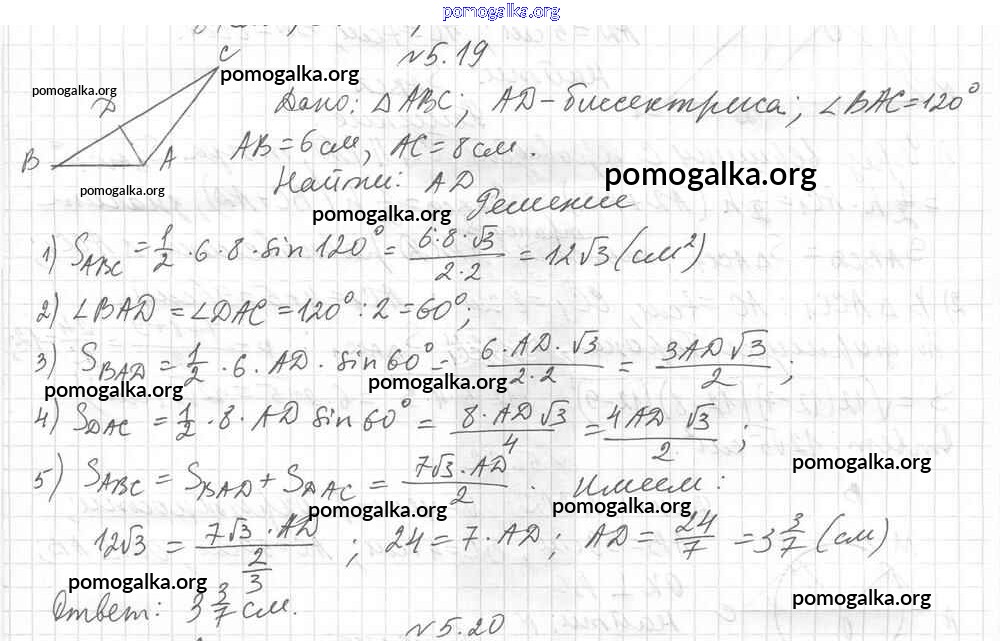 pomogalka.org
№5.19
C
pomogalka.org
pomogalka.org
D
B
A
Дано: △ABC; AD - биссектриса; ∠BAC = 120°
AB = 6 см, AC = 8 см.
pomogalka.org
pomogalka.org
Найти: AD
pomogalka.org
Решение
1) S_ABC = 1/2 · 6 · 8 · sin 120° = 6·8·√3 / 2·2 = 12√3 (см²)
2) ∠BAD = ∠DAC = 120° : 2 = 60°;
3) S_BAD = 1/2 · 6 · AD · sin 60° = 6·AD·√3 / 2·2 = 3AD√3 / 2 ;
pomogalka.org
pomogalka.org
4) S_DAC = 1/2 · 8 · AD sin 60° = 8·AD√3 / 4 = 4AD √3 / 2 ;
pomogalka.org
5) S_ABC = S_BAD + S_DAC = 7√3·AD / 2 . Имеем:
pomogalka.org
pomogalka.org
12√3 = 7√3·AD / 2 ; 24 = 7·AD ; AD = 24/7 = 3 3/7 (см)
3
pomogalka.org
pomogalka.org
Ответ: 3 3/7 см.
№5.20